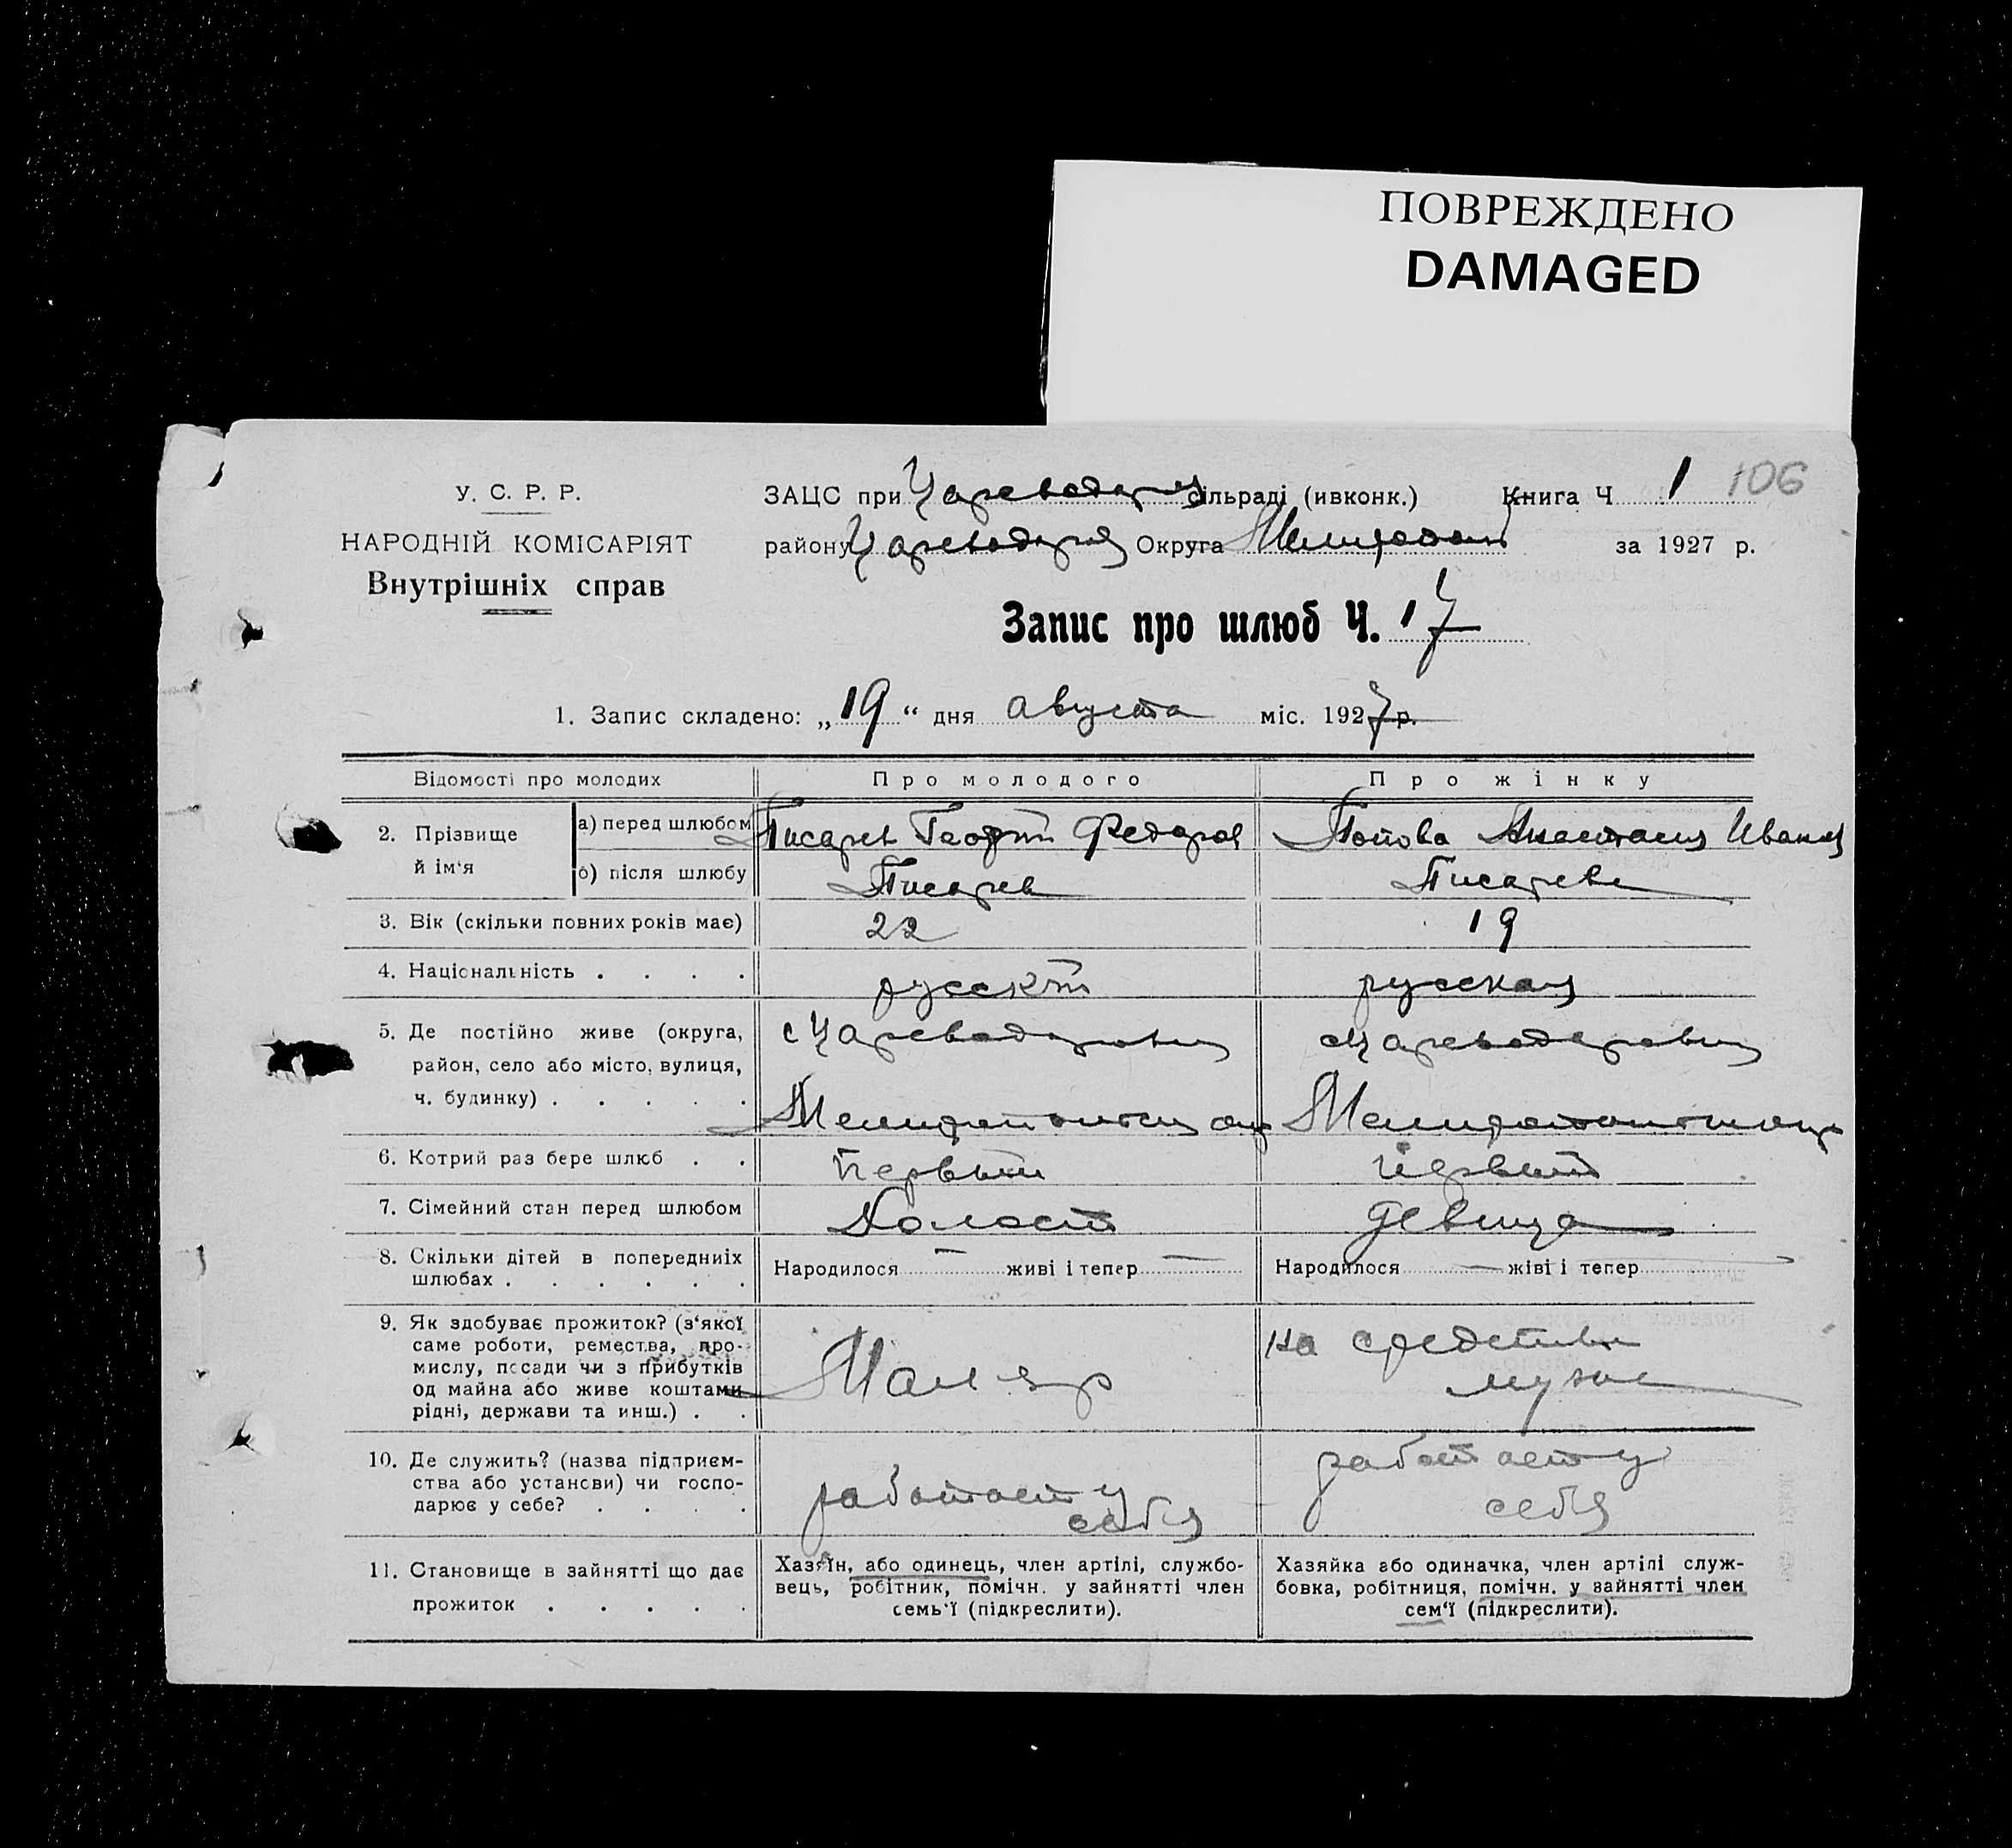 ПОВРЕЖДЕНО
DAMAGED
У. С. Р. Р.
НАРОДНІЙ КОМІСАРІЯТ
Внутрішніх справ
ЗАЦС при Цареводар сільраді (ивконк.) Книга Ч 1 106
району Цареводар Округа Мелитопол за 1927 р.
Запис про шлюб Ч. 17
1. Запис складено: „19“ дня августа міс. 1927 р.
Відомості про молодих Про молодого Про жінку
2. Прізвище й ім‘я
а) перед шлюбом Писарев Георгий Федоров Попова Анастасия Иванов
б) після шлюбу Писарев Писарева
3. Вік (скільки повних років має) 22 19
4. Національність . . . . русский русская
5. Де постійно живе (округа, с Царевадаровки с Царевадаровки
район, село або місто, вулиця,
ч. будинку) . . . . . Мелитопольск окр Мелитопольск окр
6. Котрий раз бере шлюб . . первый первый
7. Сімейний стан перед шлюбом Холост девица
8. Скільки дітей в попередниіх Народилося — живі і тепер — Народилося — жіві і тепер —
шлюбах . . . . . .
9. Як здобуває прожиток? (з‘якої на средства
саме роботи, ремества, про-
мислу, посади чи з прибутків Маляр мужа
од майна або живе коштами
рідні, держави та инш.) . .
10. Де служить? (назва підприєм- работает у
ства або установи) чи госпо- работает у себя
дарює у себе? . . . . себя
11. Становище в зайнятті що дає Хазяїн, або одинець, член артілі, службо- Хазяйка або одиначка, член артілі служ-
прожиток . . . . . вець, робітник, помічн. у зайнятті член бовка, робітниця, помічн. у зайнятті член
семь‘ї (підкреслити). сем‘ї (підкреслити).